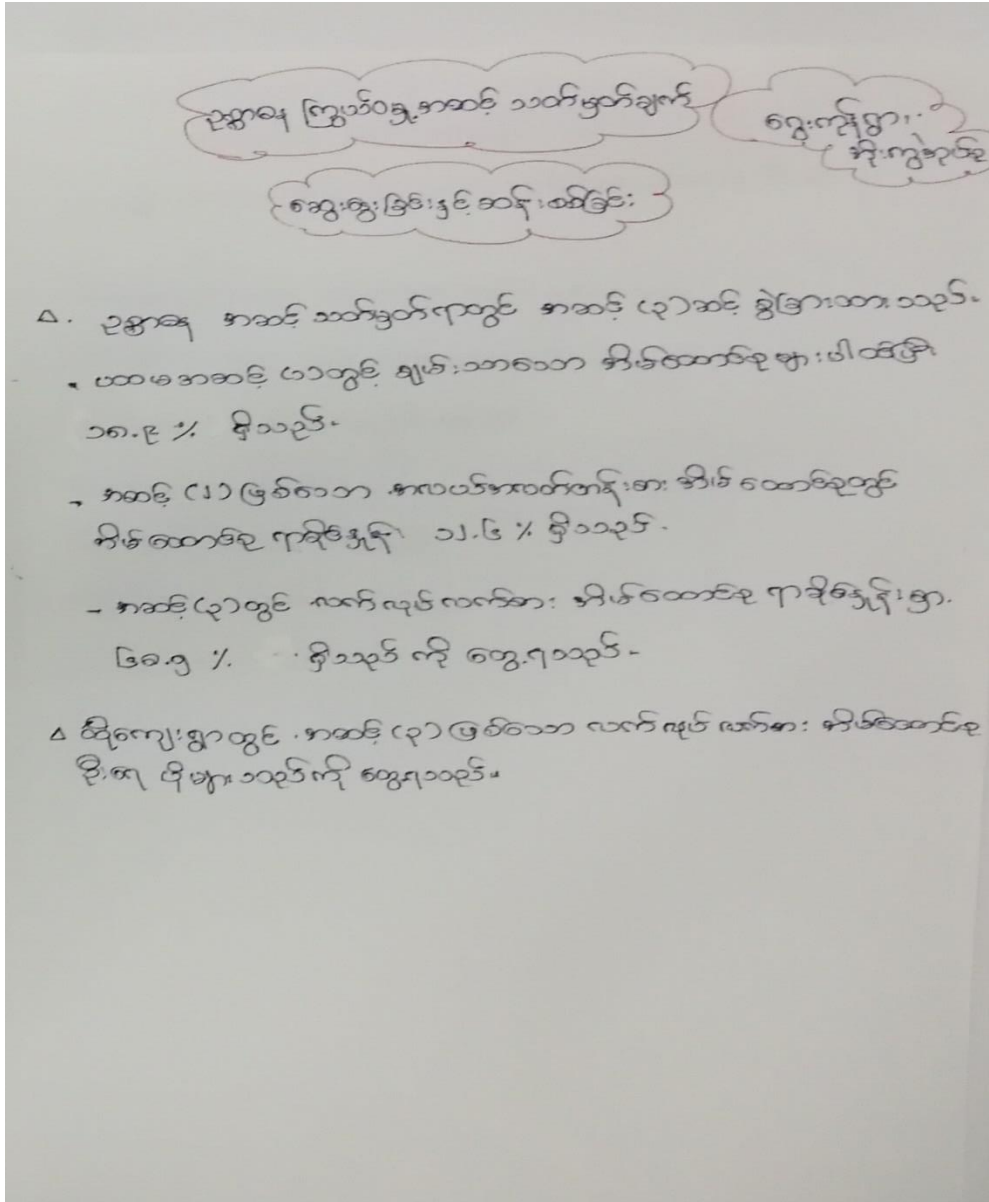 ဥစ္စာဓန ကြွယ်ဝမှု အဆင့် သတ်မှတ်ချက်
ရွေးကုန်ရွာ၊
အိုးကွဲအုပ်စု
ဆွေးနွေးခြင်းနှင့် ဆန်းစစ်ခြင်း
ဥစ္စာဓန အဆင့် သတ်မှတ်ရာတွင် အဆင့် (၃) ဆင့် ခွဲခြားထား သည်။
ပထမအဆင့် (၁) တွင် ချမ်းသာသော အိမ်ထောင်စု များ ပါဝင်ပြီး
၁၈.၉ % ရှိသည်။
- အဆင့် (၂) ဖြစ်သော အလယ်အလတ်တန်းစား အိမ်ထောင်စုတွင်
အိမ်ထောင်စု ရာခိုင်နှုန်း ၁၂.၆ % ရှိသည်။
- အဆင့် (၃) တွင် လက်လုပ်လက်စား အိမ်ထောင်စု ရာခိုင်နှုန်းမှာ
၆၈.၅ % ရှိသည် ကို တွေ့ရသည်။
ထိုကျေးရွာတွင် အဆင့် (၃) ဖြစ်သော လက်လုပ် လက်စား အိမ်ထောင်စု
ဦးရေ ပိုများသည်ကို တွေ့ရသည်။